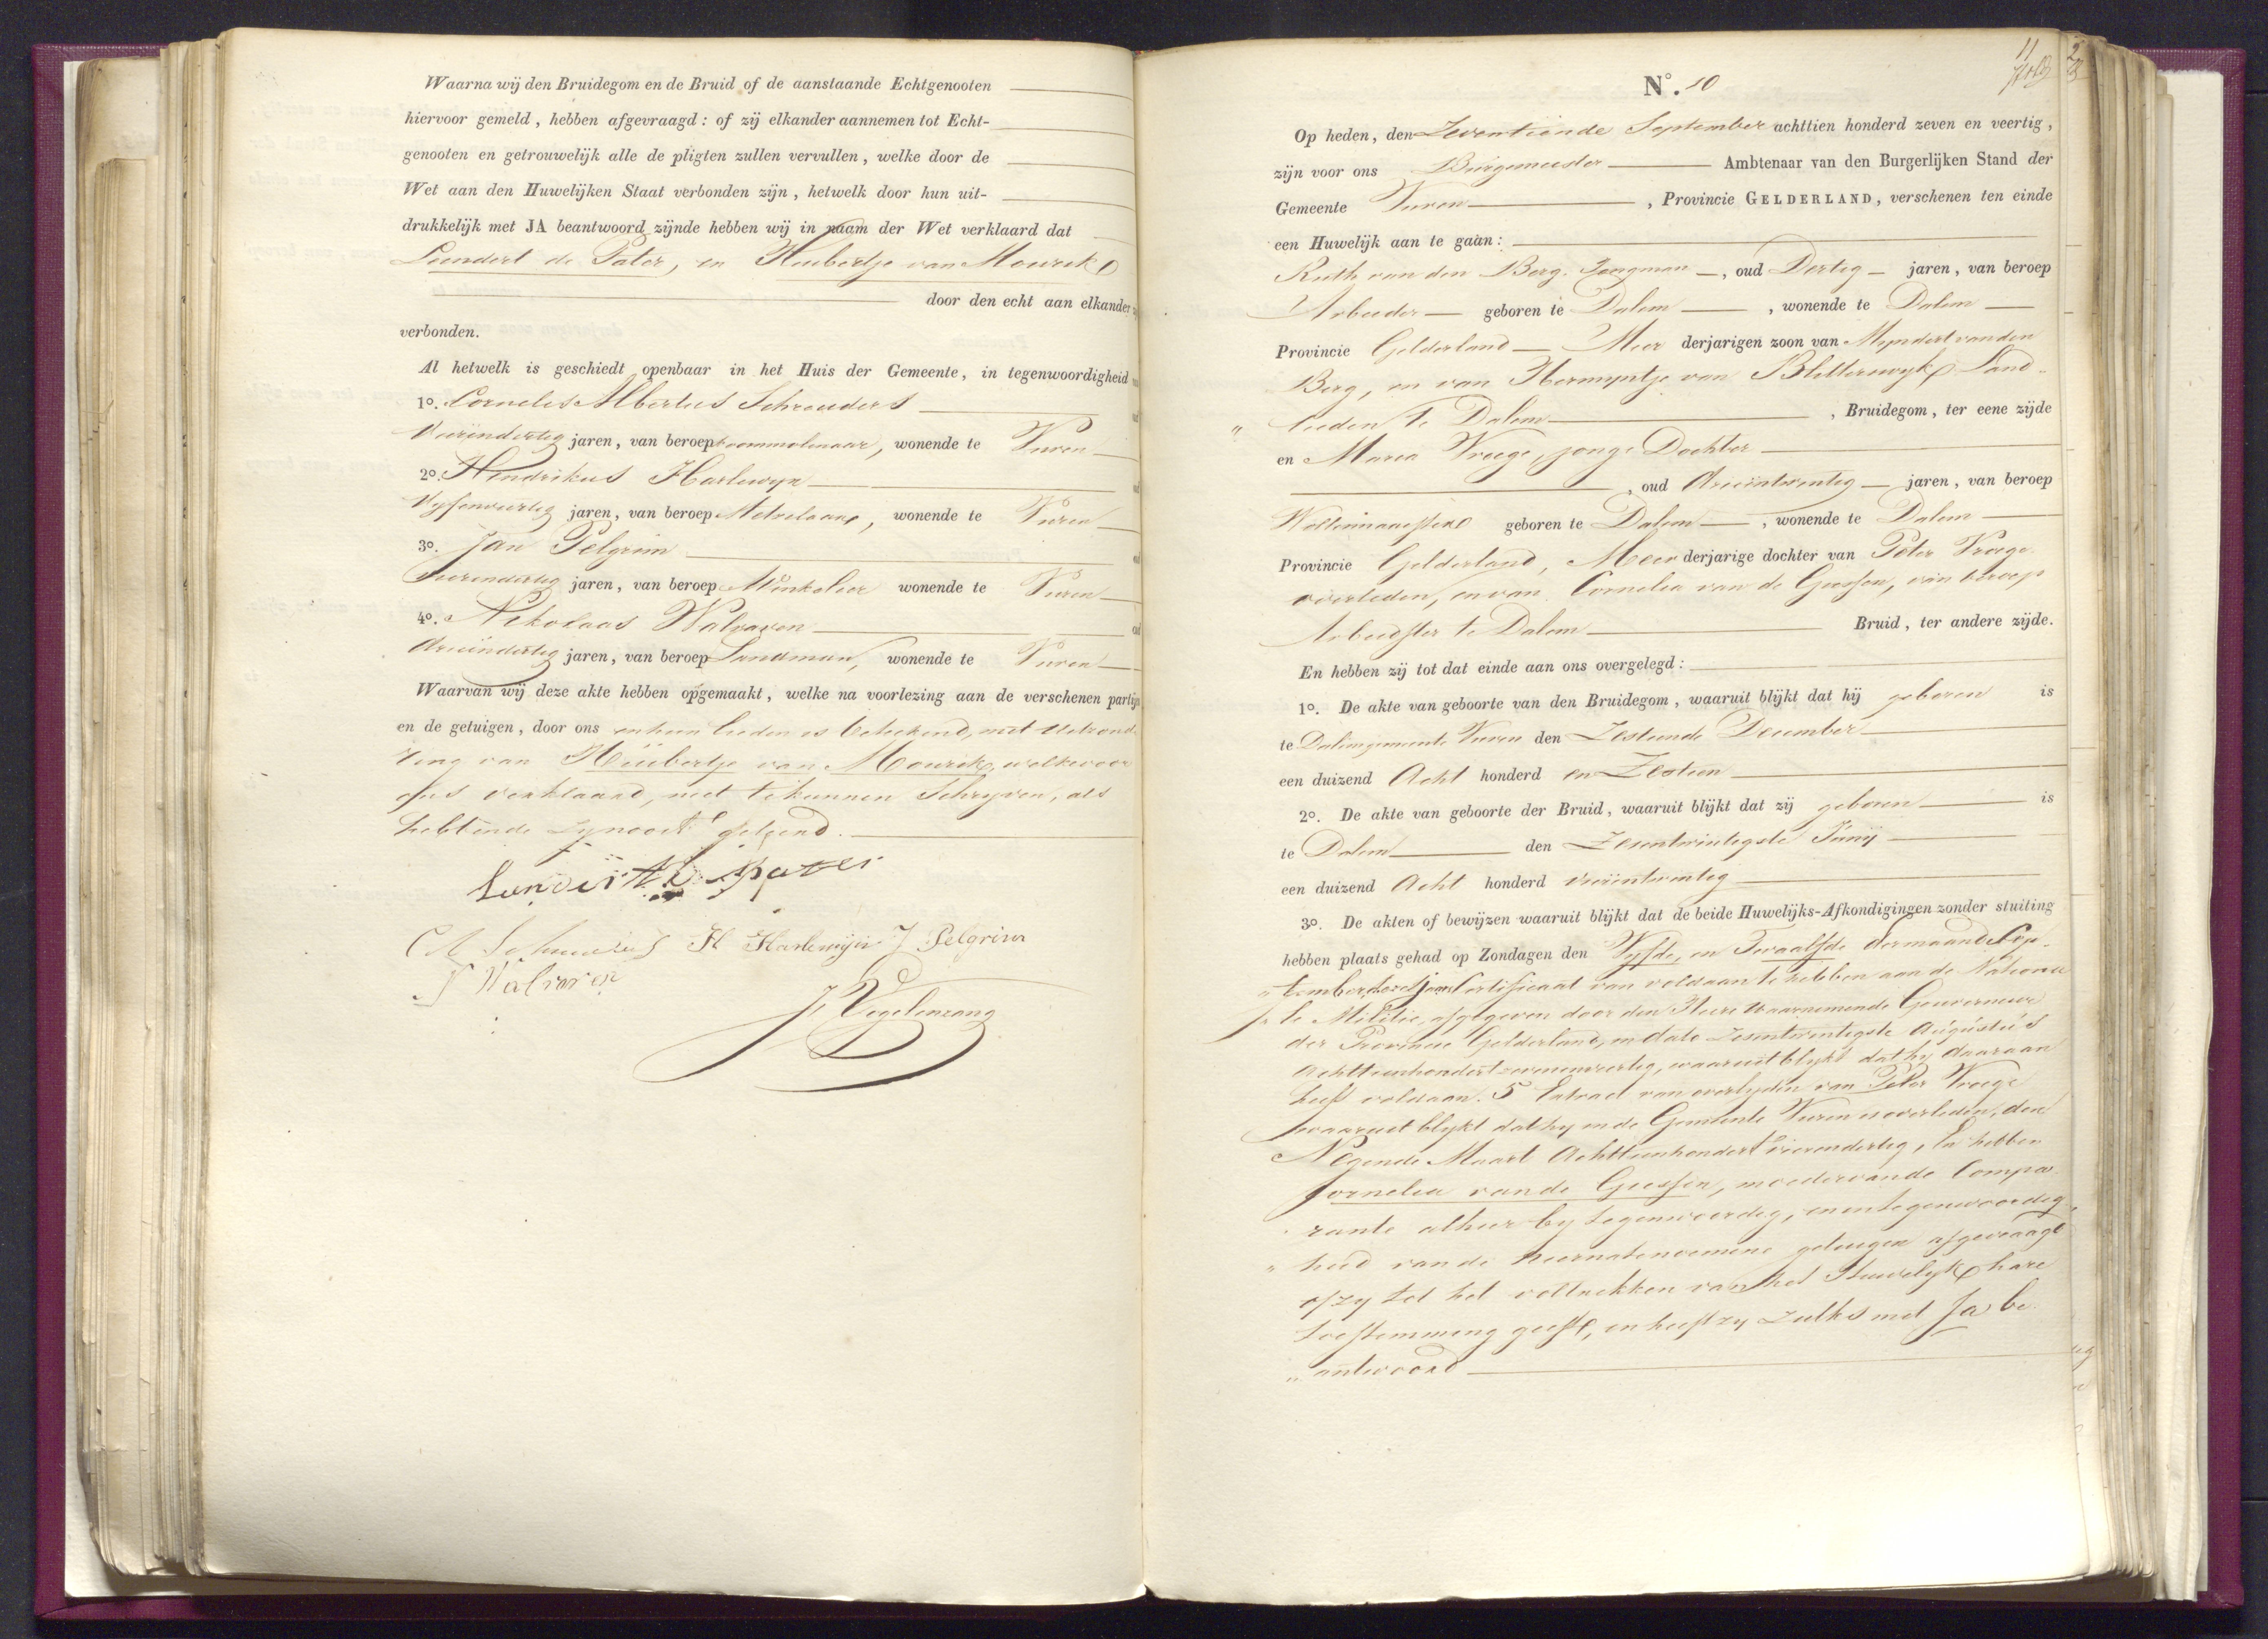 Waarna wij den Bruidegom en de Bruid of de aanstaande Echtgenooten
hiervoor gemeld, hebben afgevraagd: of zij elkander aannemen tot Echt-
genooten en getrouwelijk alle de pligten zullen vervullen, welke door de
Wet aan den Huwelijken Staat verbonden zijn, hetwelk door hun uit-
drukkelijk met JA beantwoord zijnde hebben wij in naam der Wet verklaard dat
Leendert de Pater, en Huibertje van Mourik
door den echt aan elkander
verbonden.
Al hetwelk is geschiedt openbaar in het Huis der Gemeente, in tegenwoordigheid
1o. Cornelis Albertus Schreuders
Vierendertig jaren, van beroep koornmolenaar, wonende te Vuren
2o. Hendrikus Harlewyn
Vyfenveertig jaren, van beroep Metselaar, wonende te Vuren
3o. Jan Pelgrim
Vierendertig jaren, van beroep Winkelier wonende te Vuren
4o. Nikolaas Walraven
drieëndertig jaren, van beroep Landman, wonende te Vuren
Waarvan wij deze akte hebben opgemaakt, welke na voorlezing aan de verschenen partijen
en de getuigen, door ons en hun lieden is geteekend, met uitzonde
ring van Huibertje van Mourik, welke voor
ons verklaard, niet te kunnen Schryven, als
hebbende zy nooit geleerd.
Lendert de pater
CA Schreuders H Harlewijn J Pelgrim
N Walraven
J Vogelenzang
11
No. 10
Op heden, den Zeventiende September achttien honderd zeven en veertig,
zijn voor ons Burgemeester Ambtenaar van den Burgerlijken Stand der
Gemeente Vuren, Provincie GELDERLAND, verschenen ten einde
een Huwelijk aan te gaan:
Ruth van den Berg. Jongman, oud Dertig jaren, van beroep
Arbeider geboren te Dalem, wonende te Dalem
Provincie Gelderland Meer derjarigen zoon van Meyndert van den
Berg, en van Hermyntje van Blitterswyk Land-
" lieden te Dalem, Bruidegom, ter eene zijde
en Maria Vroege, jonge Dochter
, oud drieentwentig jaren, van beroep
geboren te Dalem, wonende te Dalem
Provincie Gelderland, Meer derjarige dochter van Peter Vroege
overleden, en van Cornelia van de Giessen, van beroep
Arbeidster te Dalem Bruid, ter andere zijde.
En hebben zij tot dat einde aan ons overgelegd:
1o. De akte van geboorte van den Bruidegom, waaruit blijkt dat hij geboren is
te Dalem gemeente Vuren den Zestiende December
een duizend Acht honderd en Zestien
2o. De akte van geboorte der Bruid, waaruit blijkt dat zij geboren is
te Dalem den Zesentwintigste Junij
een duizend Acht honderd drieëntwentig
3o. De akten of bewijzen waaruit blijkt dat de beide Huwelijks-Afkondigingen zonder stuiting
hebben plaats gehad op Zondagen den Vyfde, en Twaalfde der maand Sep-
" tember dezes jaars Certificaat van voldaan te hebben aan de Nationa
le Militie, afgegeven door den Heere waarnemende Gouverneur
der Provincie Gelderland, in dato Zesentwintigste Augustus
Achttienhondert zevenenveertig, waaruit blykt dat hy daaraan
heeft voldaan. 5 Extract van overlyden van Peter Vroege
waaruit blykt dat hy in de Gemeente Vuren is overleden, den
Negende Maart Achttienhondert vierendertig, En hebben
Cornelia van de Giessen, moeder van de Compa
rante alhier by tegenwoordig, en in tegenwoordig
" heid van de hiernatenoemene getuigen afgevraagt
of zy tot het voltrekken van het Huwelyk hare
toestemming geeft, en heeft zy zulks met Ja be
" antwoord